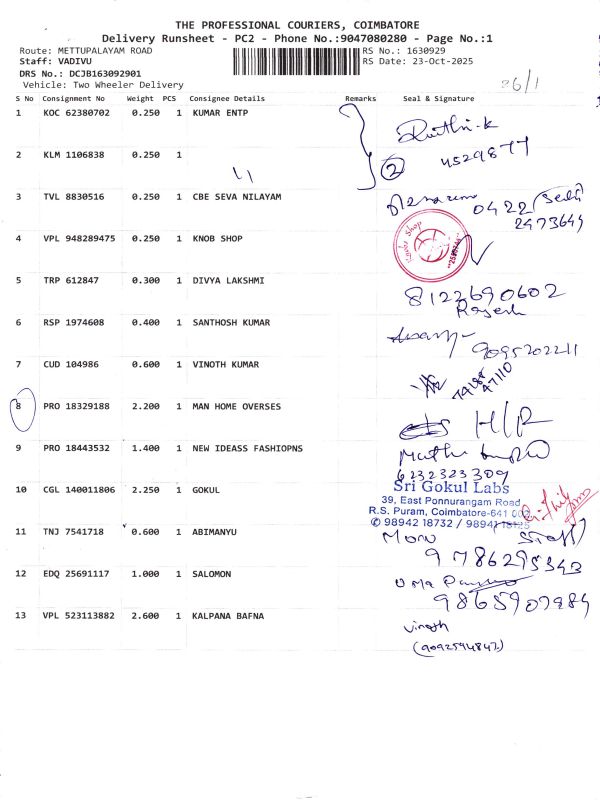 THE PROFESSIONAL COURIERS, COIMBATORE
Delivery Runsheet - PC2 - Phone No.:9047080280 - Page No.:1
Route: METTUPALAYAM ROAD
RS No.: 1630929
Staff: VADIVU
RS Date: 23-Oct-2025
DRS No.: DCJB163092901
Vehicle: Two Wheeler Delivery
26/1
S No Consignment No Weight PCS Consignee Details Remarks Seal & Signature
1 KOC 62380702 0.250 1 KUMAR ENTP
2 KLM 1106838 0.250 1
2
4529877
3 TVL 8830516 0.250 1 CBE SEVA NILAYAM
0422
2473649
4 VPL 948289475 0.250 1 KNOB SHOP
5 TRP 612847 0.300 1 DIVYA LAKSHMI
8122690602
Rajesh
6 RSP 1974608 0.400 1 SANTHOSH KUMAR
9095202211
7 CUD 104986 0.600 1 VINOTH KUMAR
8 PRO 18329188 2.200 1 MAN HOME OVERSES
H/R
9 PRO 18443532 1.400 1 NEW IDEASS FASHIOPNS
6232323309
10 CGL 140011806 2.250 1 GOKUL
Sri Gokul Labs
39, East Ponnurangam Road
R.S. Puram, Coimbatore-641 002
✆ 98942 18732 / 98941 18125
11 TNJ 7541718 0.600 1 ABIMANYU
Staff
9786295343
12 EDQ 25691117 1.000 1 SALOMON
Uma
9865907884
13 VPL 523113882 2.600 1 KALPANA BAFNA
Vinoth